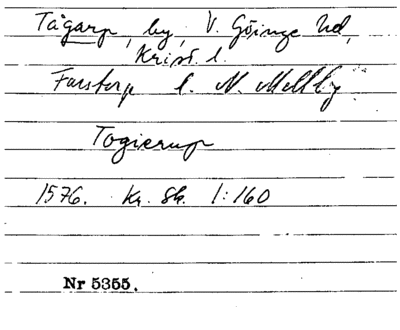 Tågarp, by, V. Göinge hd,
Krist. l.
Farstorp l. N. Mellby
Togierup
1576. Kr. Sk. 1:160
Nr 5355.